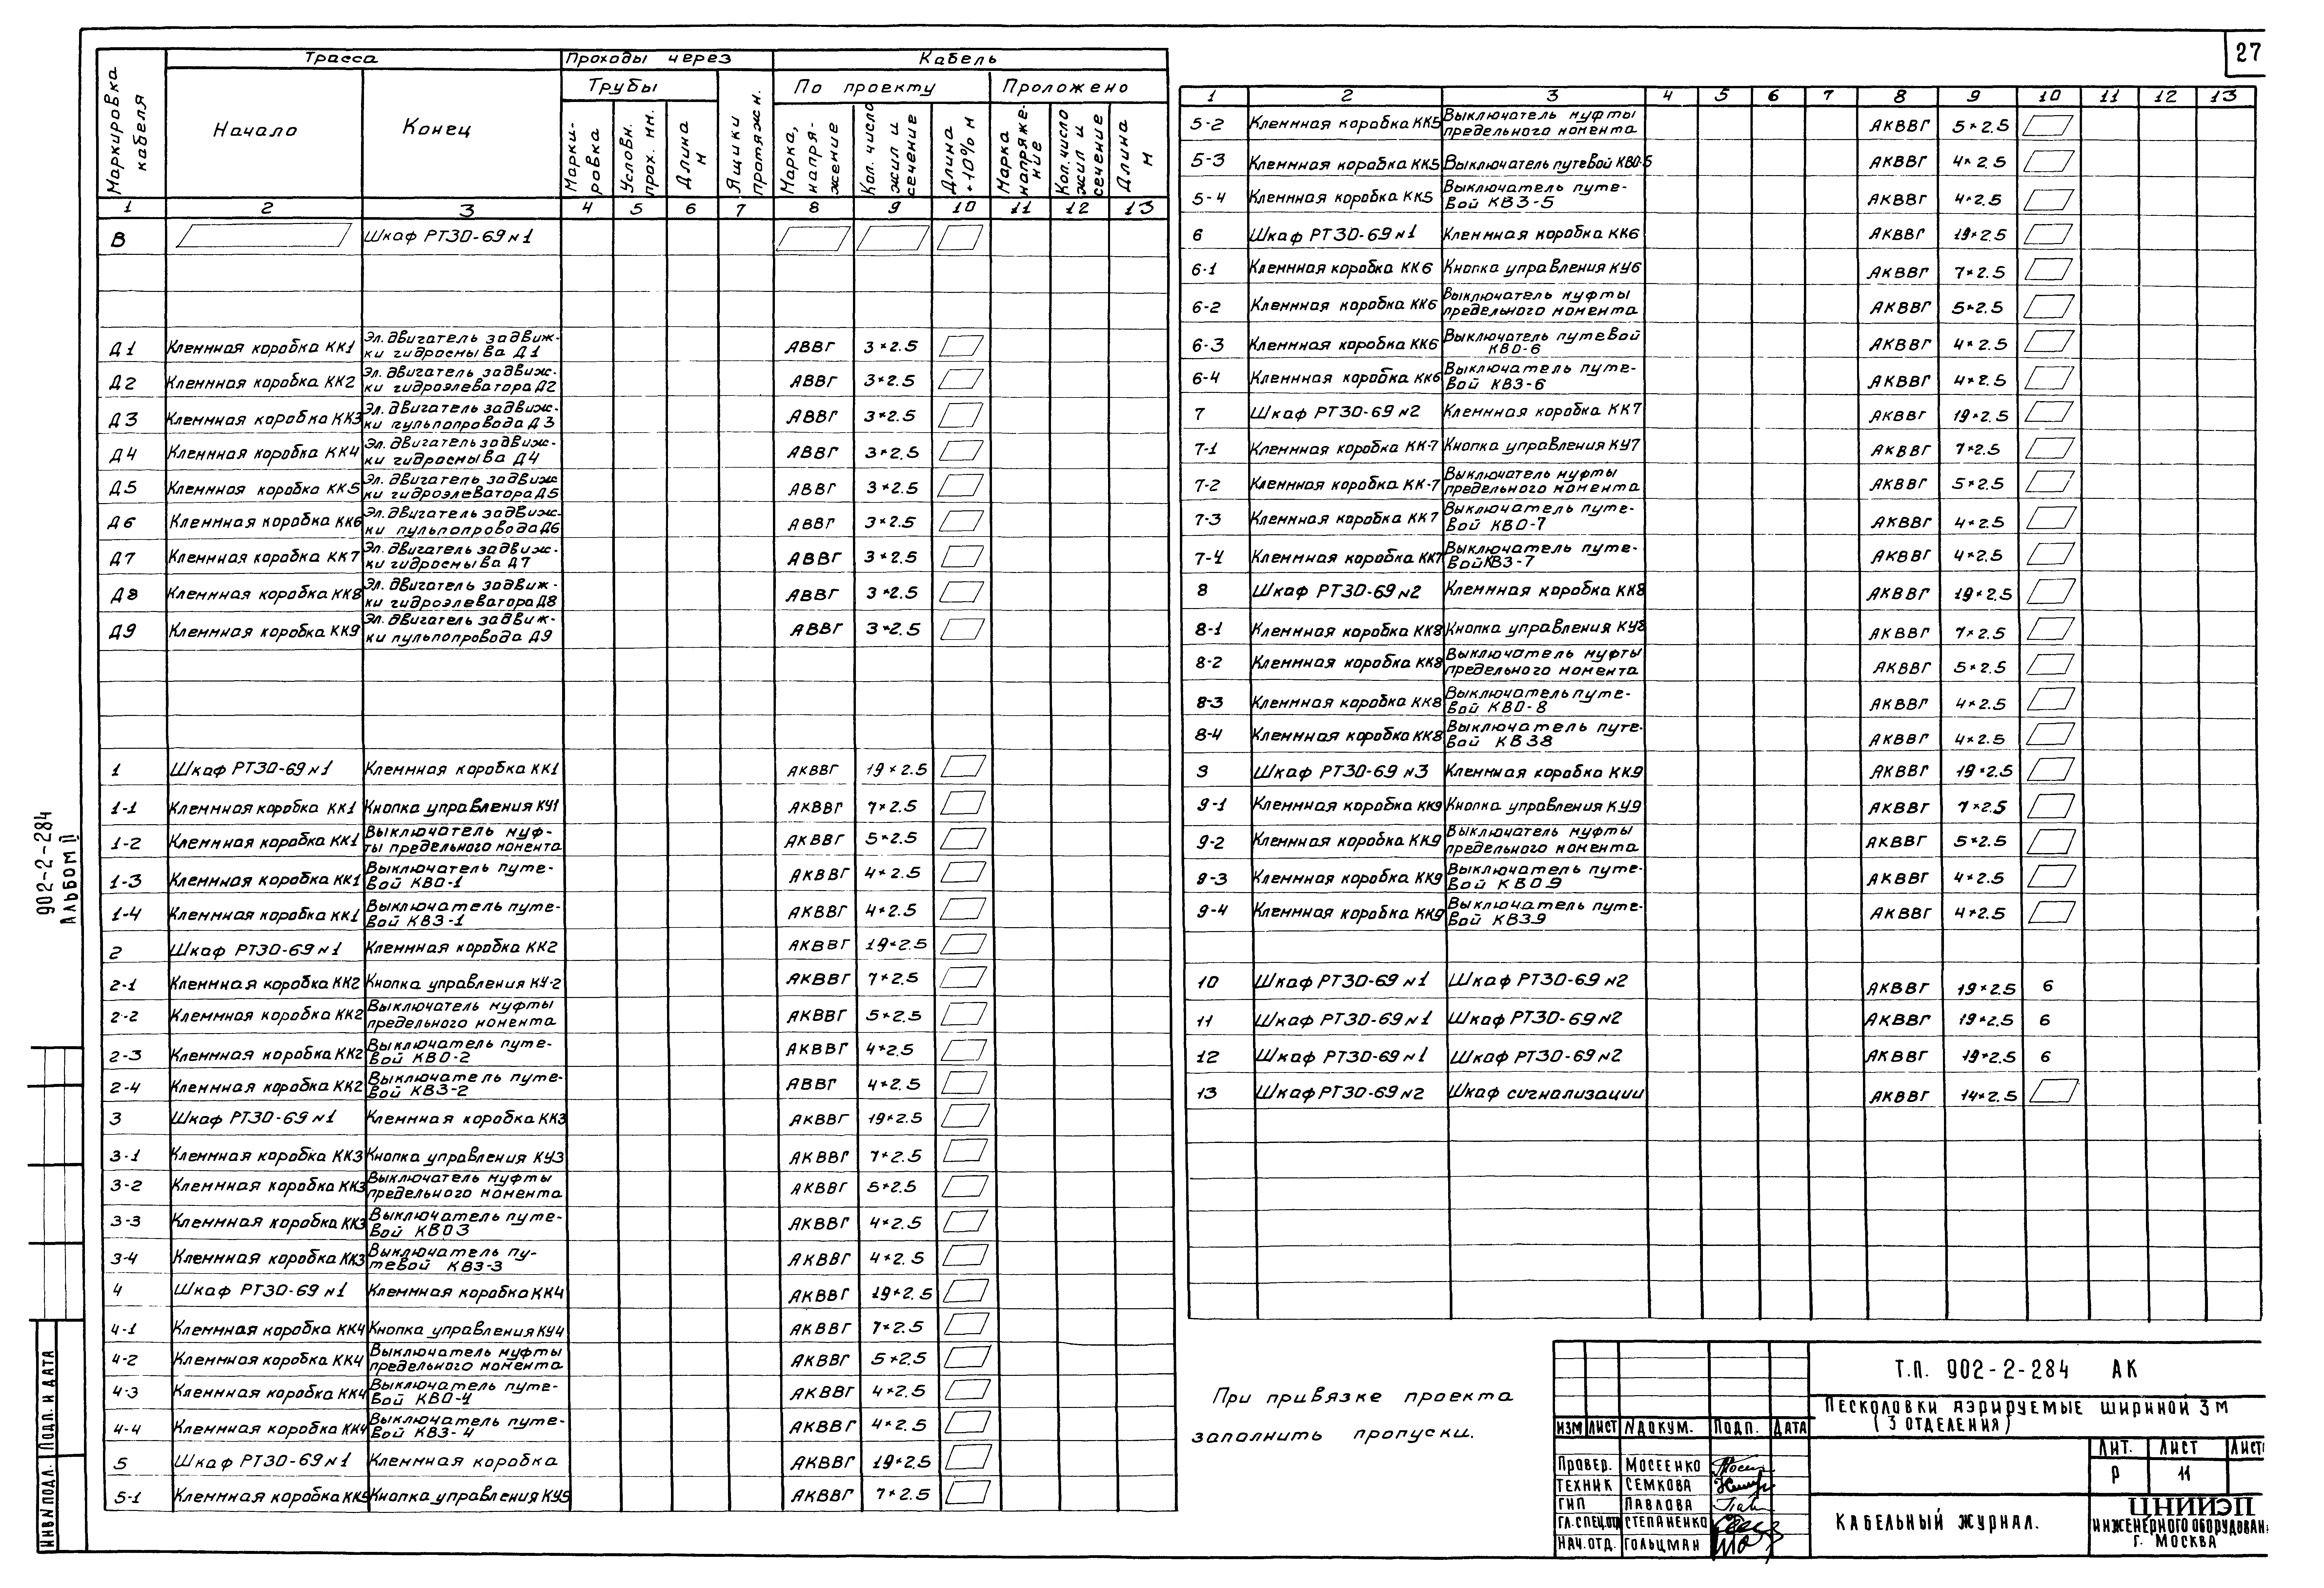 27
902-2-284
Альбом II
Маркировка кабеля
Трасса
Проходы через
Кабель
Начало
Конец
Трубы
Ящики протяжн.
По проекту
Проложено
Маркировка
Условн. прох. мм.
Длина м
Марка, напряжение
Кол. число жил и сечение
Длина +10% м
Марка напряжение
Кол. число жил и сечение
Длина м
1 2 3 4 5 6 7 8 9 10 11 12 13
В Шкаф РТЗО-69 №1
Д1 Клеммная коробка КК1 Эл. двигатель задвиж-
ки гидросмыва Д1 АВВГ 3×2.5
Д2 Клеммная коробка КК2 Эл. двигатель задвиж-
ки гидроэлеватора Д2 АВВГ 3×2.5
Д3 Клеммная коробка КК3 Эл. двигатель задвиж-
ки пульпопровода Д3 АВВГ 3×2.5
Д4 Клеммная коробка КК4 Эл. двигатель задвиж-
ки гидросмыва Д4 АВВГ 3×2.5
Д5 Клеммная коробка КК5 Эл. двигатель задвиж
ки гидроэлеватора Д5 АВВГ 3×2.5
Д6 Клеммная коробка КК6 Эл. двигатель задвиж-
ки пульпопровода Д6 АВВГ 3×2.5
Д7 Клеммная коробка КК7 Эл. двигатель задвиж-
ки гидросмыва Д7 АВВГ 3×2.5
Д8 Клеммная коробка КК8 Эл. двигатель задвиж-
ки гидроэлеватора Д8 АВВГ 3×2.5
Д9 Клеммная коробка КК9 Эл. двигатель задвиж-
ки пульпопровода Д9 АВВГ 3×2.5
1 Шкаф РТЗО-69 №1 Клеммная коробка КК1 АКВВГ 19×2.5
1-1 Клеммная коробка КК1 Кнопка управления КУ1 АКВВГ 7×2.5
1-2 Клеммная коробка КК1 Выключатель муф-
ты предельного момента АКВВГ 5×2.5
1-3 Клеммная коробка КК1 Выключатель путе-
вой КВО-1 АКВВГ 4×2.5
1-4 Клеммная коробка КК1 Выключатель путе-
вой КВЗ-1 АКВВГ 4×2.5
2 Шкаф РТЗО-69 №1 Клеммная коробка КК2 АКВВГ 19×2.5
2-1 Клеммная коробка КК2 Кнопка управления КУ-2 АКВВГ 7×2.5
2-2 Клеммная коробка КК2 Выключатель муфты
предельного момента АКВВГ 5×2.5
2-3 Клеммная коробка КК2 Выключатель путе-
вой КВО-2 АКВВГ 4×2.5
2-4 Клеммная коробка КК2 Выключатель путе-
вой КВЗ-2 АВВГ 4×2.5
3 Шкаф РТЗО-69 №1 Клеммная коробка КК3 АКВВГ 19×2.5
3-1 Клеммная коробка КК3 Кнопка управления КУ3 АКВВГ 7×2.5
3-2 Клеммная коробка КК3 Выключатель муфты
предельного момента АКВВГ 5×2.5
3-3 Клеммная коробка КК3 Выключатель путе-
вой КВО3 АКВВГ 4×2.5
3-4 Клеммная коробка КК3 Выключатель пу-
тевой КВЗ-3 АКВВГ 4×2.5
4 Шкаф РТЗО-69 №1 Клеммная коробка КК4 АКВВГ 19×2.5
4-1 Клеммная коробка КК4 Кнопка управления КУ4 АКВВГ 7×2.5
4-2 Клеммная коробка КК4 Выключатель муфты
предельного момента АКВВГ 5×2.5
4-3 Клеммная коробка КК4 Выключатель путе-
вой КВО-4 АКВВГ 4×2.5
4-4 Клеммная коробка КК4 Выключатель путе-
вой КВЗ-4 АКВВГ 4×2.5
5 Шкаф РТЗО-69 №1 Клеммная коробка АКВВГ 19×2.5
5-1 Клеммная коробка КК5 Кнопка управления КУ5 АКВВГ 7×2.5
1 2 3 4 5 6 7 8 9 10 11 12 13
5-2 Клеммная коробка КК5 Выключатель муфты
предельного момента АКВВГ 5×2.5
5-3 Клеммная коробка КК5 Выключатель путевой КВО-5 АКВВГ 4×2.5
5-4 Клеммная коробка КК5 Выключатель путе-
вой КВЗ-5 АКВВГ 4×2.5
6 Шкаф РТЗО-69 №1 Клеммная коробка КК6 АКВВГ 19×2.5
6-1 Клеммная коробка КК6 Кнопка управления КУ6 АКВВГ 7×2.5
6-2 Клеммная коробка КК6 Выключатель муфты
предельного момента АКВВГ 5×2.5
6-3 Клеммная коробка КК6 Выключатель путевой
КВО-6 АКВВГ 4×2.5
6-4 Клеммная коробка КК6 Выключатель путе-
вой КВЗ-6 АКВВГ 4×2.5
7 Шкаф РТЗО-69 №2 Клеммная коробка КК7 АКВВГ 19×2.5
7-1 Клеммная коробка КК-7 Кнопка управления КУ7 АКВВГ 7×2.5
7-2 Клеммная коробка КК-7 Выключатель муфты
предельного момента АКВВГ 5×2.5
7-3 Клеммная коробка КК7 Выключатель путе-
вой КВО-7 АКВВГ 4×2.5
7-4 Клеммная коробка КК7 Выключатель путе-
вой КВЗ-7 АКВВГ 4×2.5
8 Шкаф РТЗО-69 №2 Клеммная коробка КК8 АКВВГ 19×2.5
8-1 Клеммная коробка КК8 Кнопка управления КУ8 АКВВГ 7×2.5
8-2 Клеммная коробка КК8 Выключатель муфты
предельного момента АКВВГ 5×2.5
8-3 Клеммная коробка КК8 Выключатель путе-
вой КВО-8 АКВВГ 4×2.5
8-4 Клеммная коробка КК8 Выключатель путе-
вой КВЗ8 АКВВГ 4×2.5
9 Шкаф РТЗО-69 №3 Клеммная коробка КК9 АКВВГ 19×2.5
9-1 Клеммная коробка КК9 Кнопка управления КУ9 АКВВГ 7×2.5
9-2 Клеммная коробка КК9 Выключатель муфты
предельного момента АКВВГ 5×2.5
9-3 Клеммная коробка КК9 Выключатель путе-
вой КВО9 АКВВГ 4×2.5
9-4 Клеммная коробка КК9 Выключатель путе-
вой КВЗ9 АКВВГ 4×2.5
10 Шкаф РТЗО-69 №1 Шкаф РТЗО-69 №2 АКВВГ 19×2.5 6
11 Шкаф РТЗО-69 №1 Шкаф РТЗО-69 №2 АКВВГ 19×2.5 6
12 Шкаф РТЗО-69 №1 Шкаф РТЗО-69 №2 АКВВГ 19×2.5 6
13 Шкаф РТЗО-69 №2 Шкаф сигнализации АКВВГ 14×2.5
При привязке проекта
заполнить пропуски.
Т.П. 902-2-284 АК
Песколовки аэрируемые шириной 3м
(3 отделения)
Изм Лист №докум. Подп. Дата
Провер. Мосеенко
Техник Семкова
ГИП Павлова
Гл.спец.отд Степаненко
Нач.отд. Гольцман
Лит. Лист Лист
Р 11
Кабельный журнал.
ЦНИИЭП
инженерного оборудован
г. Москва
Инв № подл. Подп. и дата